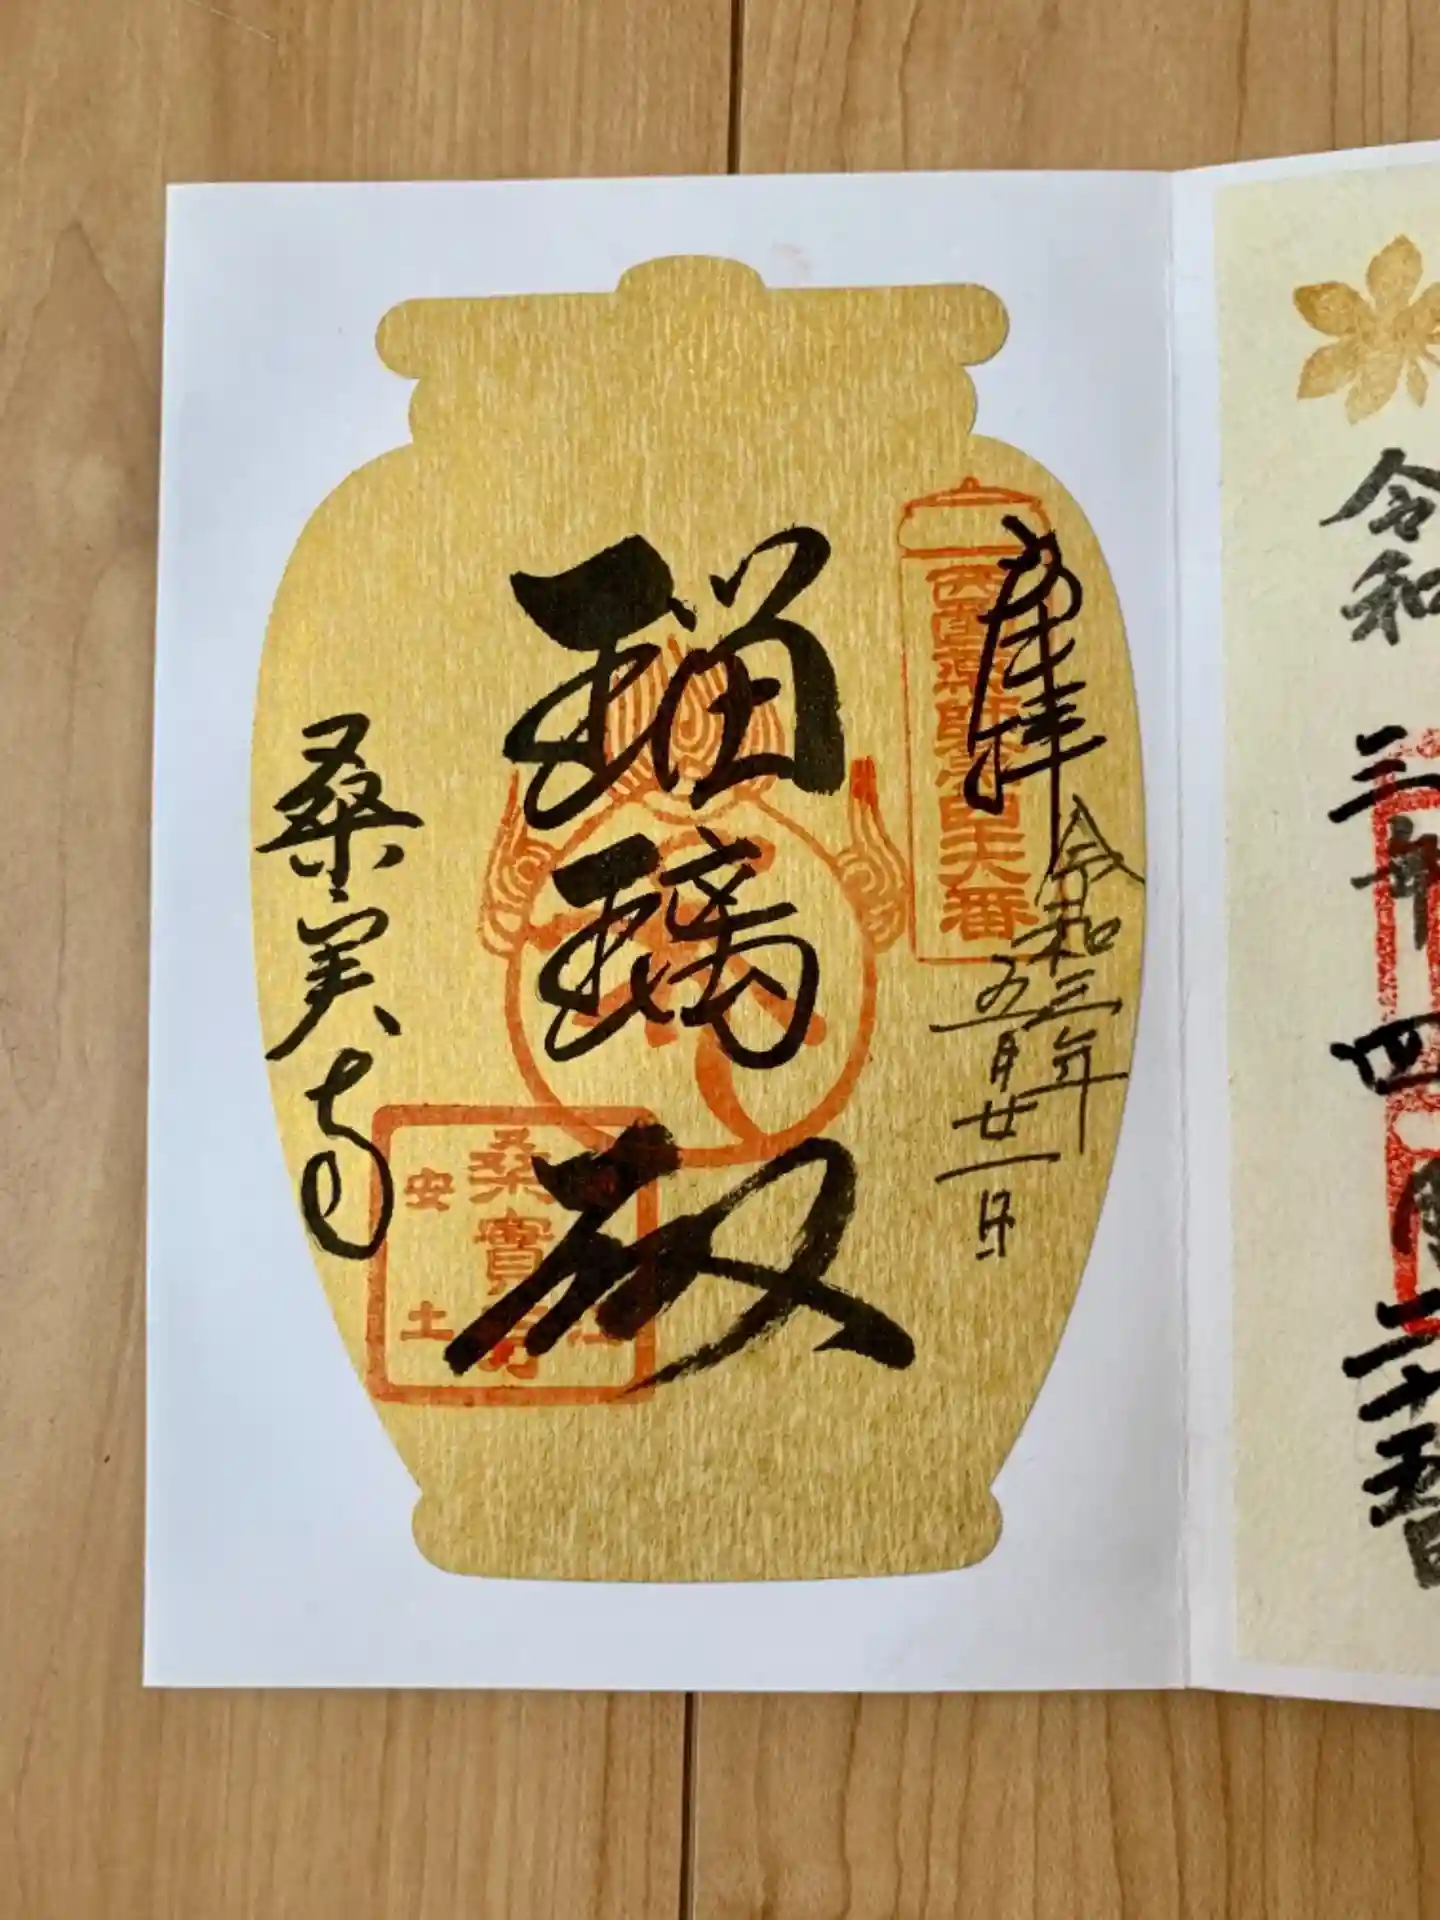 令和
三年
四
二十
奉拝
西國薬師第四十六番
令和三年
五月廿一日
瑠璃殿
桑実寺
桑實寺
安土